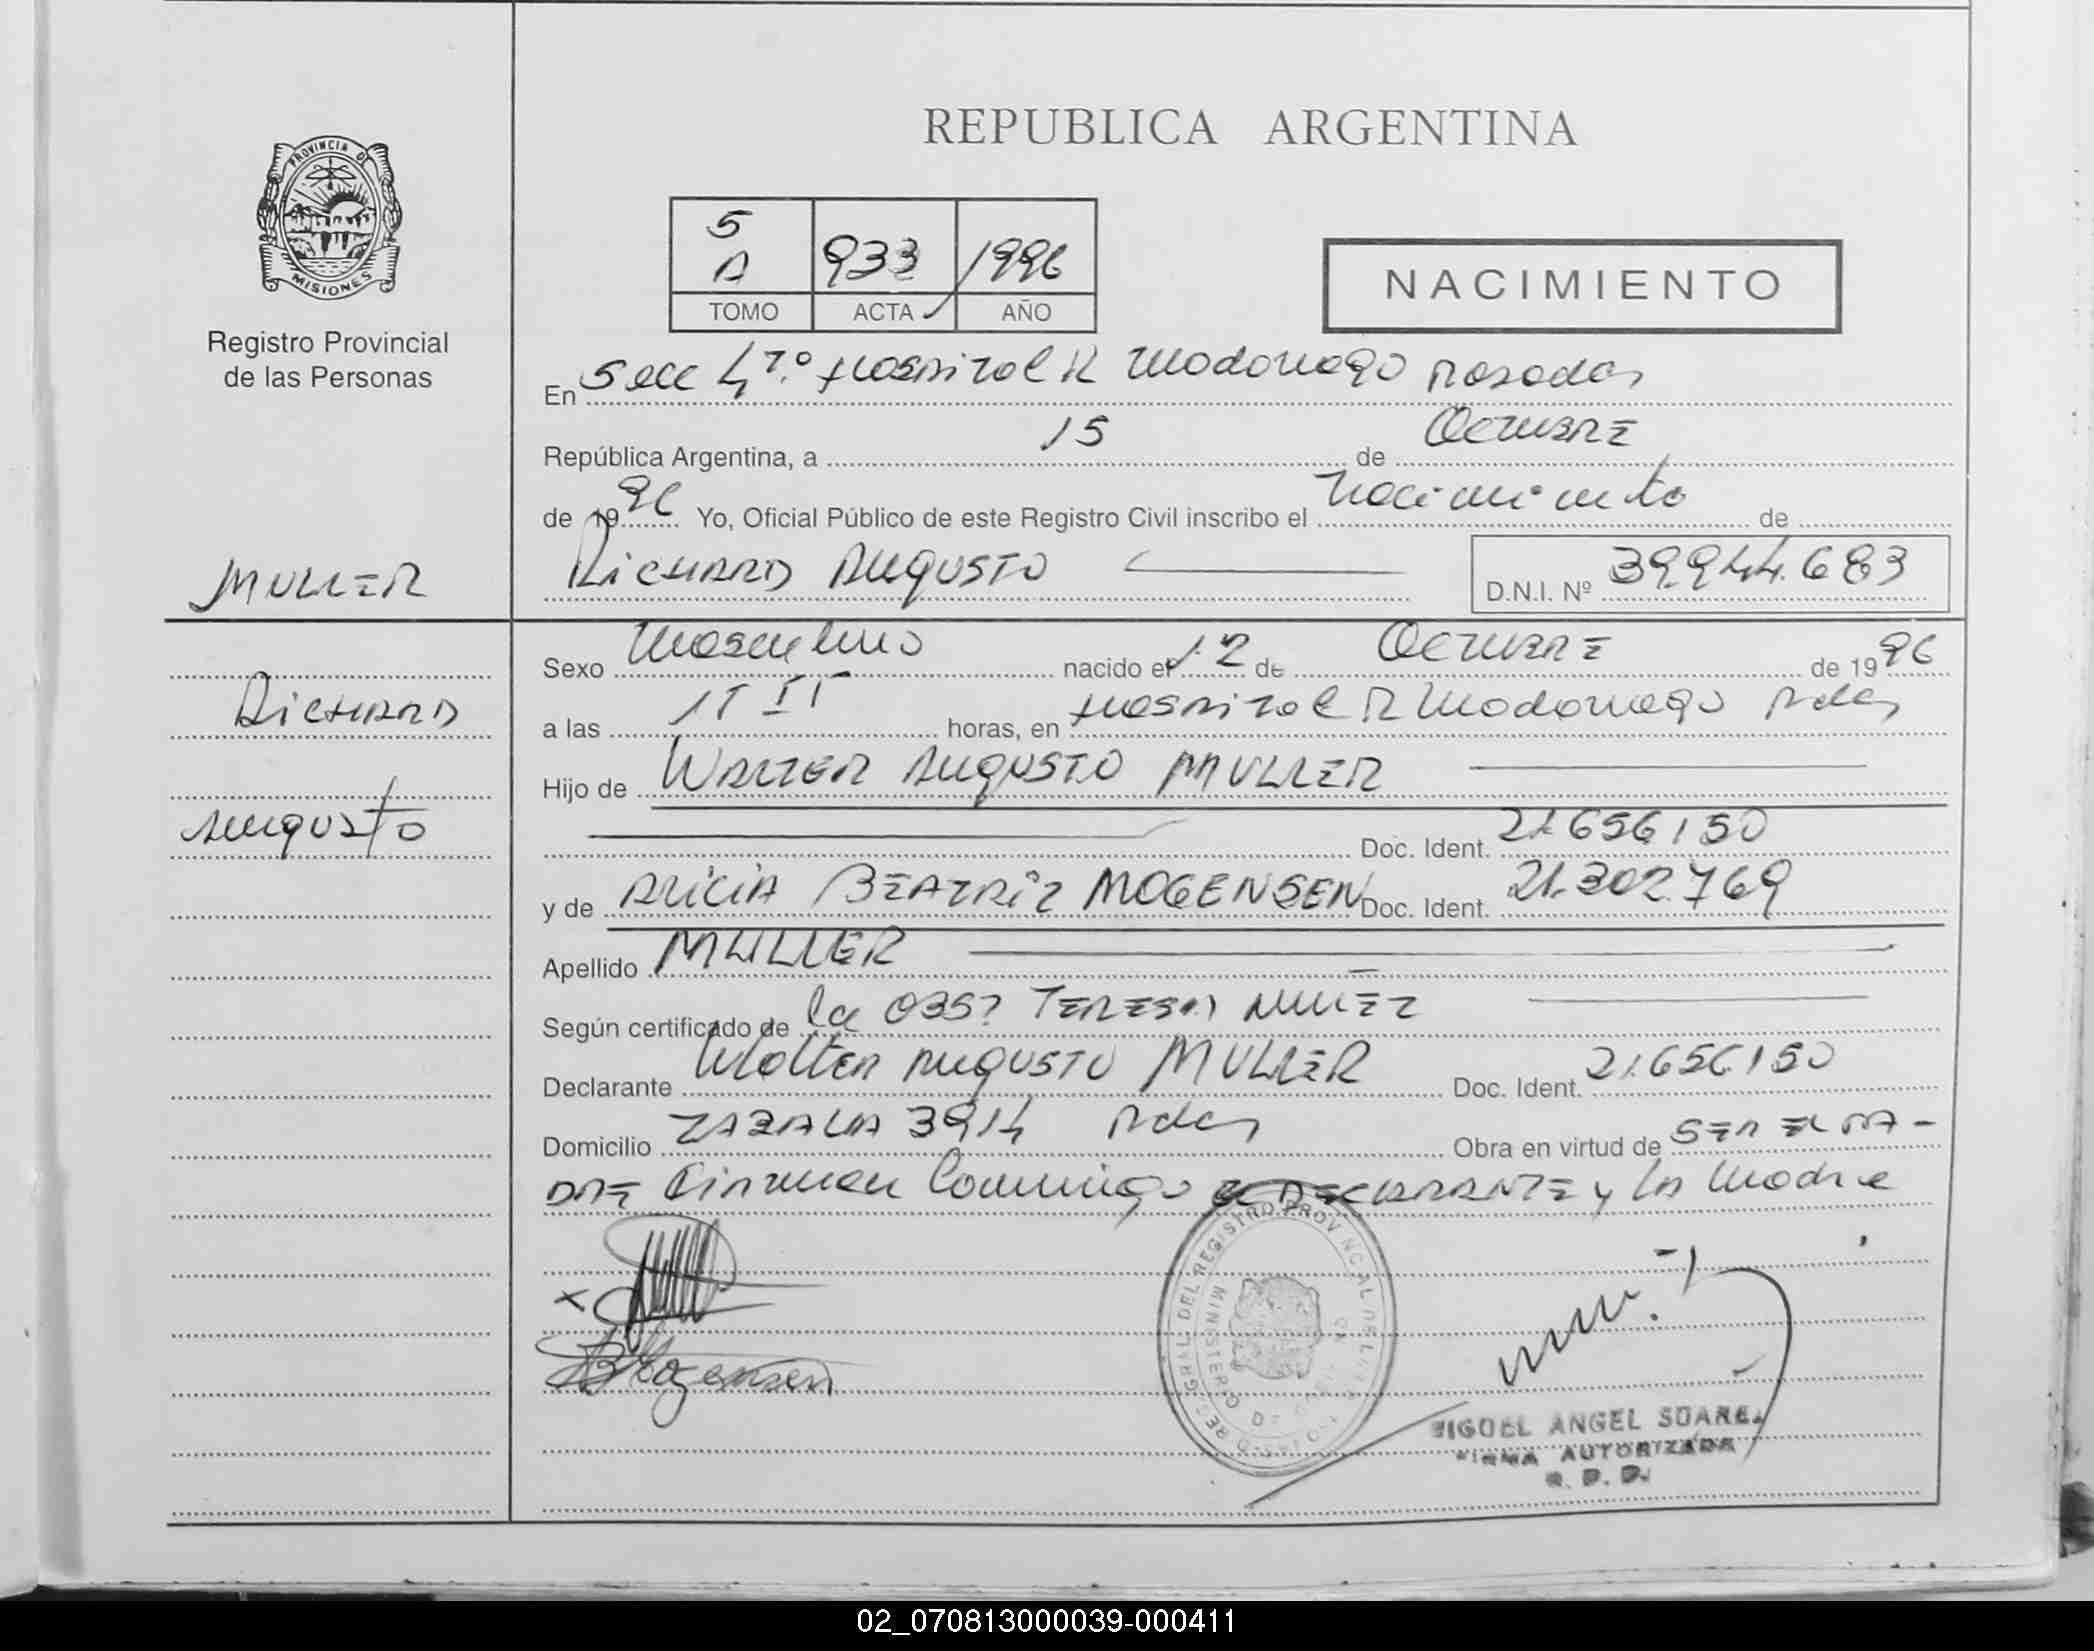 REPUBLICA ARGENTINA
PROVINCIA DE
MISIONES
Registro Provincial
de las Personas
5 A 933 1996
TOMO ACTA AÑO
NACIMIENTO
En Secc 4ta. Hospital R Madariaga Posadas
República Argentina, a 15 de Octubre
de 1996 Yo, Oficial Público de este Registro Civil inscribo el nacimiento de
MULLER
RICHARD AUGUSTO D.N.I. Nº 39.944.683
Sexo Masculino nacido el 12 de Octubre de 1996
RICHARD
a las horas, en Hospital R Madariaga Pdas
Hijo de WALTER AUGUSTO MULLER
Augusto
Doc. Ident. 21.656.150
y de ALICIA BEATRIZ MOGENSEN Doc. Ident. 21.302.769
Apellido MULLER
Según certificado de la OBST TERESA NUÑEZ
Declarante Walter AUGUSTO MULLER Doc. Ident. 21.656.150
Domicilio ZABALA 3914 Pdas Obra en virtud de SER EL PA-
DRE Firman Conmigo el DECLARANTE y LA Madre
MIGUEL ANGEL SUAREZ
FIRMA AUTORIZADA
R. P. P.
02_070813000039-000411